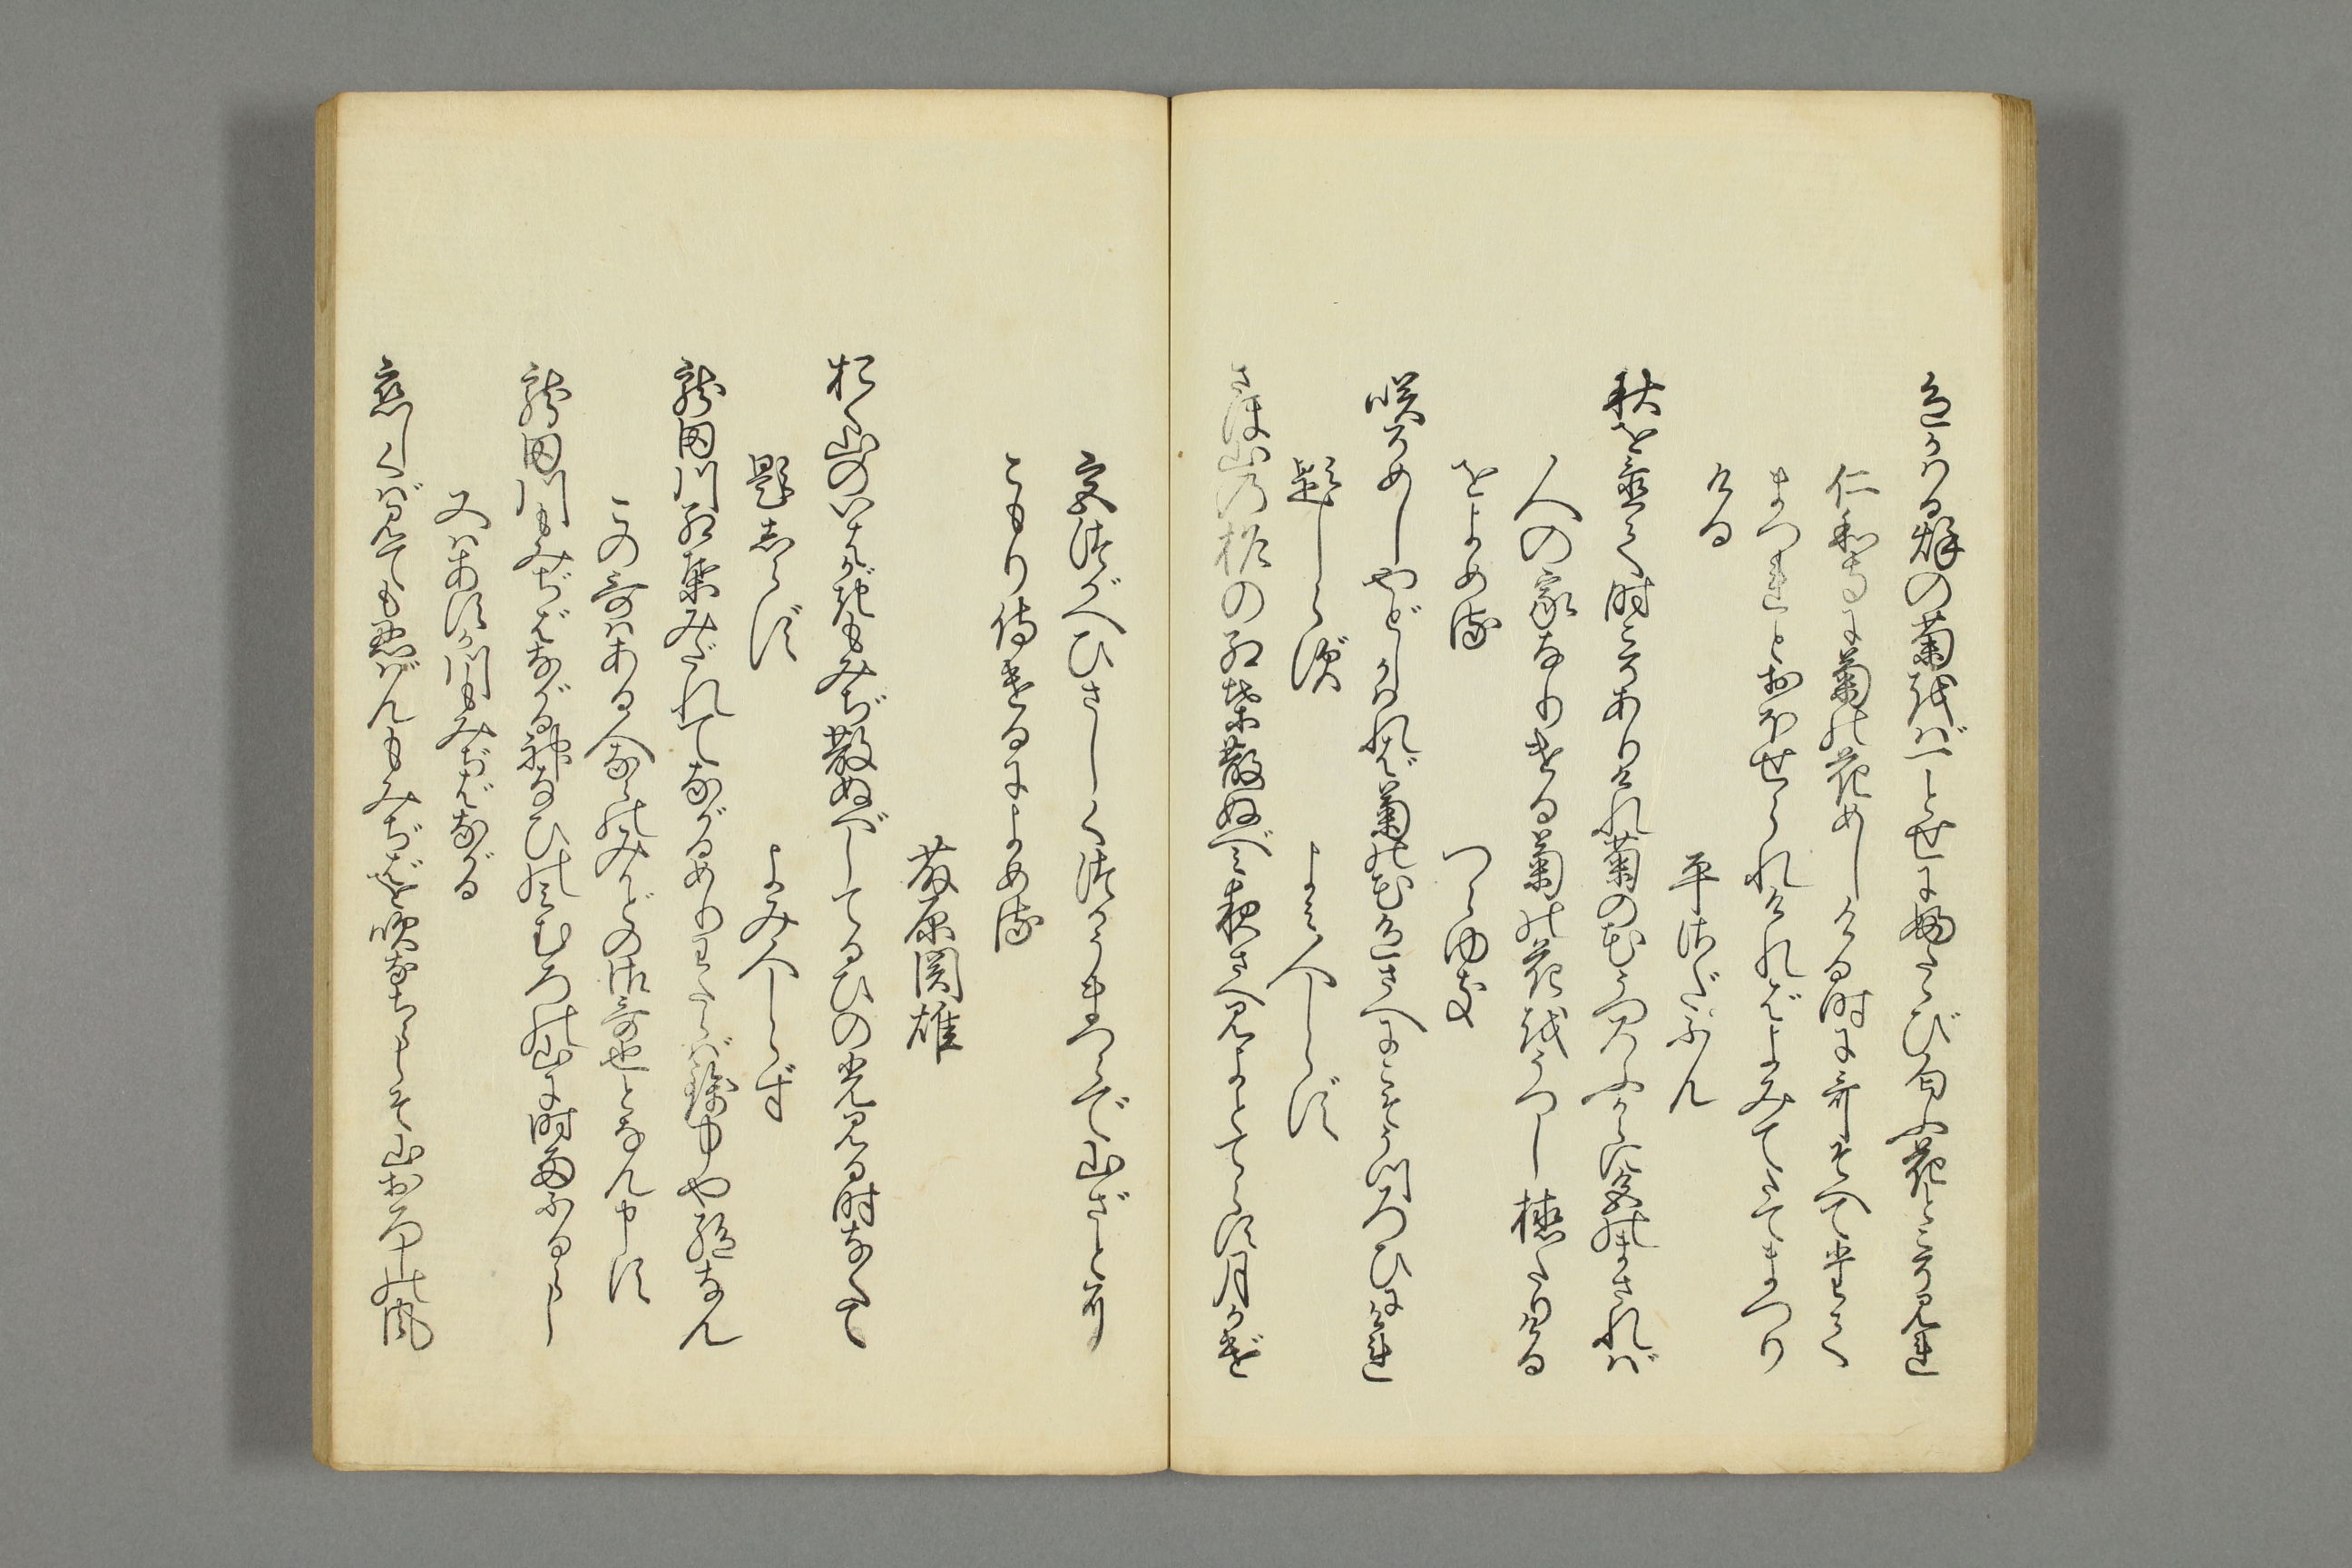 色かはる秌の菊をば一とせにふたゝび匂ふ花とこそ見れ
仁和寺に菊の花めしける時に哥そへて奉る
まつれとおほせられければよみてたてまつり
ける
平さだふん
秋を置て時こそありけれ菊の花うつろふからに色のまされば
人の家なりける菊の花をうつし植たりける
をよめる
つらゆき
咲そめしやどしかはれば菊の花色さへにこそうつろひにけれ
題しらず
よみ人しらず
さほ山の柞の紅葉散ぬべみ夜さへ見よとてらす月かげ
宮づかへひさしくつかうまつらで山ざとに
こもり侍けるによめる
藤原関雄
おく山のいはがきもみぢ散ぬべしてるひの光見る時なくて
題しらず
よみ人しらず
龍田川紅葉みだれてながるめりわたらば錦中や絶なん
この哥はある人ならのみかどの御哥也となん申す
龍田川もみぢばながる神なびのみむろの山に時雨ふるらし
又はあすか川もみぢばながる
恋しくば見ても忍ばんもみぢばを吹なちらしそ山おろしの風